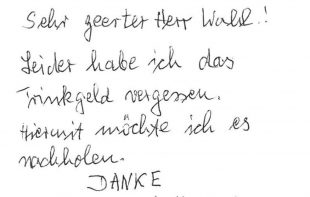 Sehr geerter Herr Wahl.!
Leider habe ich das
Trinkgeld vergessen.
Hiermit möchte ich es
nachholen.
DANKE